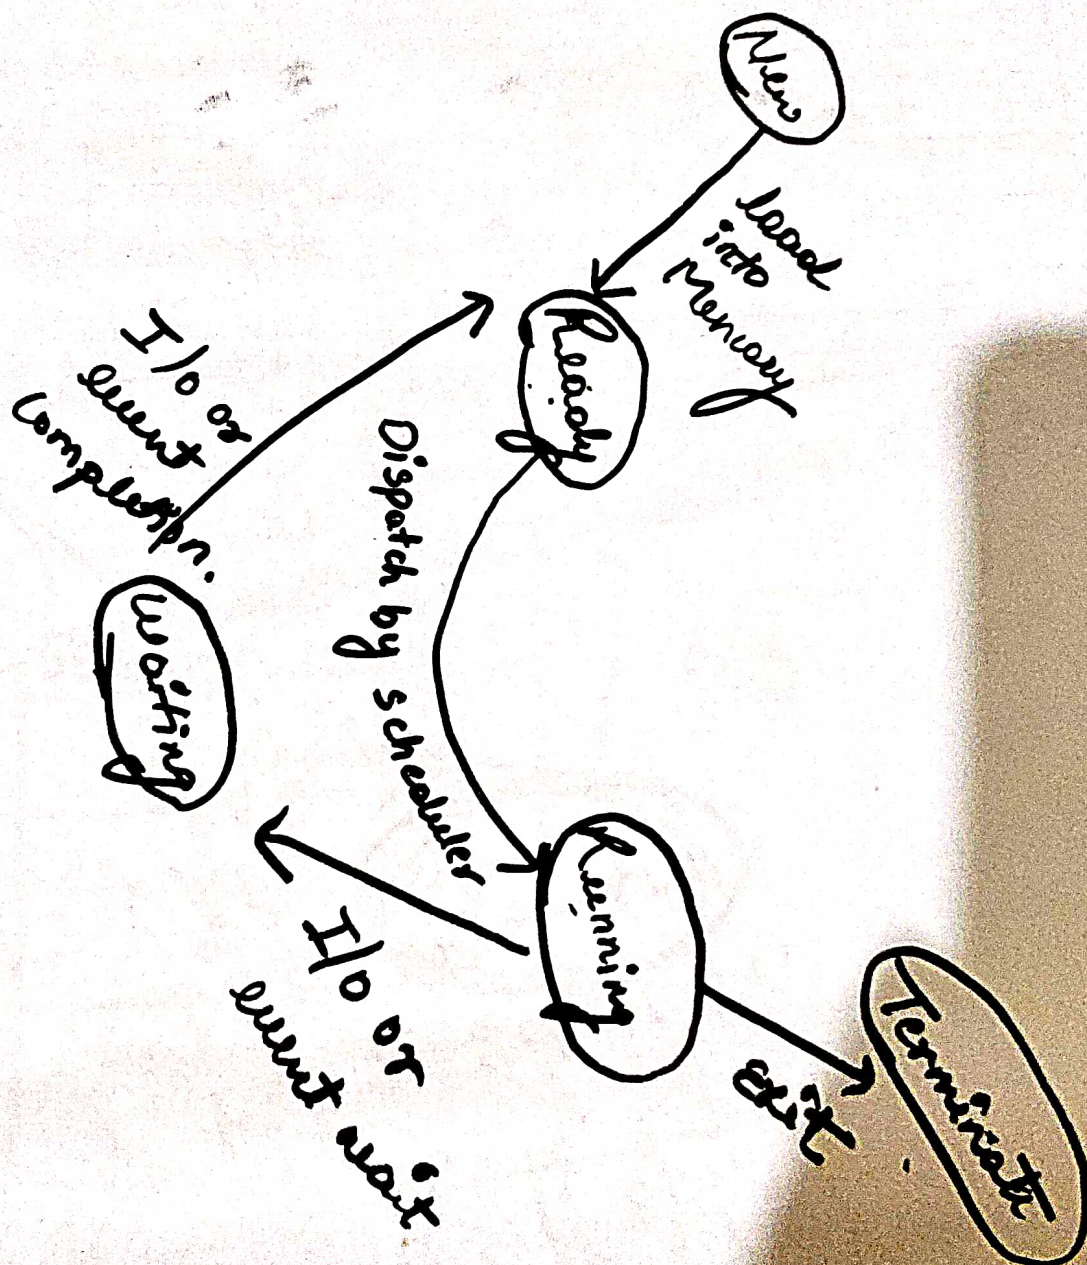 New
load
into
Memory
Ready
Dispatch by scheduler
Running
Exit
Terminate
I/O or
event wait
Waiting
I/O or
event
Completion.